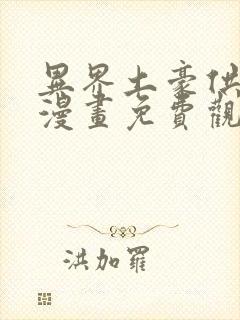 異界土豪供
漫畫免費觀
洪加羅